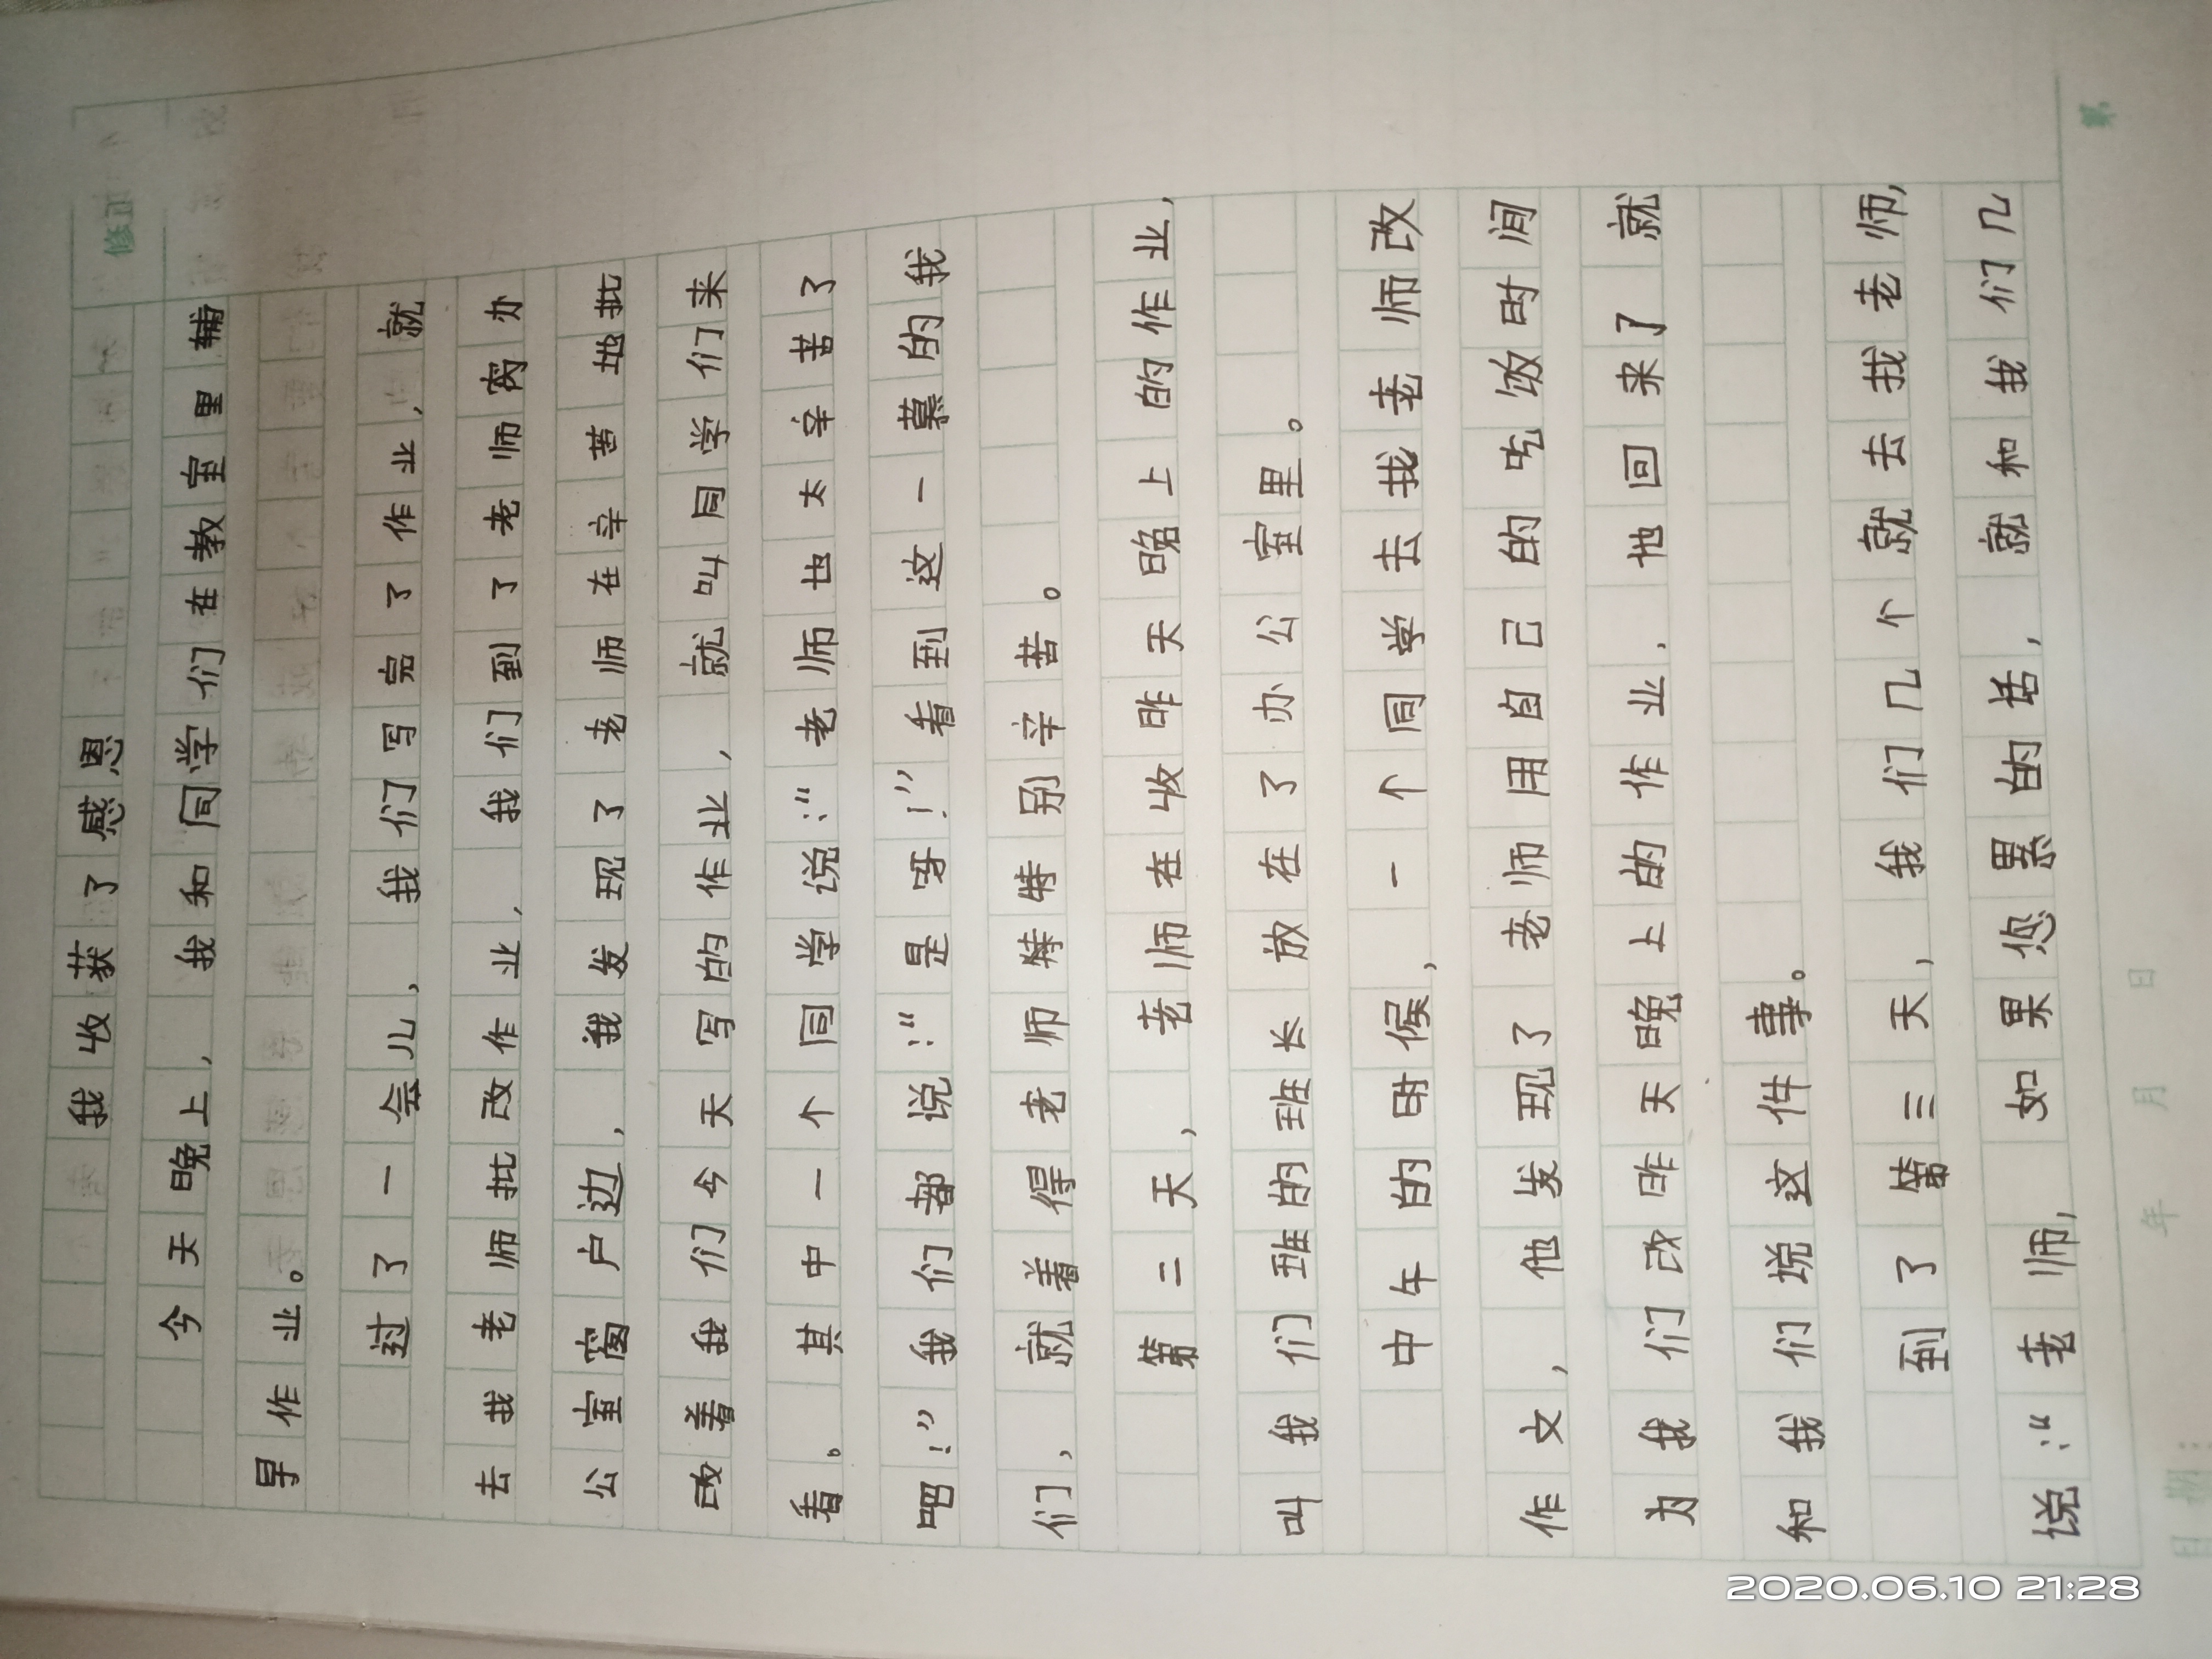 修正
我收获了感恩
今天晚上，我和同学们在教室里辅
早作业。
过了一会儿，我们写完了作业，就
去找老师批改作业，我们到了老师窝办
公室窗户边，我发现了老师在辛苦地批
改着我们今天写的作业，就叫同学们来
看。其中一个同学说：“老师也太辛苦了
吧！”我们都说：“是呀！”看到这一慕的我
们，就着得老师特特别辛苦。
第二天，老师在收昨天晚上的作业，
叫我们班的班长放在了办公室里。
中午的时候，一个同学去找老师改
作文，他发现了老师用自己的吃饭时间
为我们改昨天晚上的作业，他回来了就
和我们说这件事。
到了第三天，我们几个就去找老师，
说：“老师，如果您累的话，就和我们几
第
日期：
年 月 日
2020.06.10 21:28